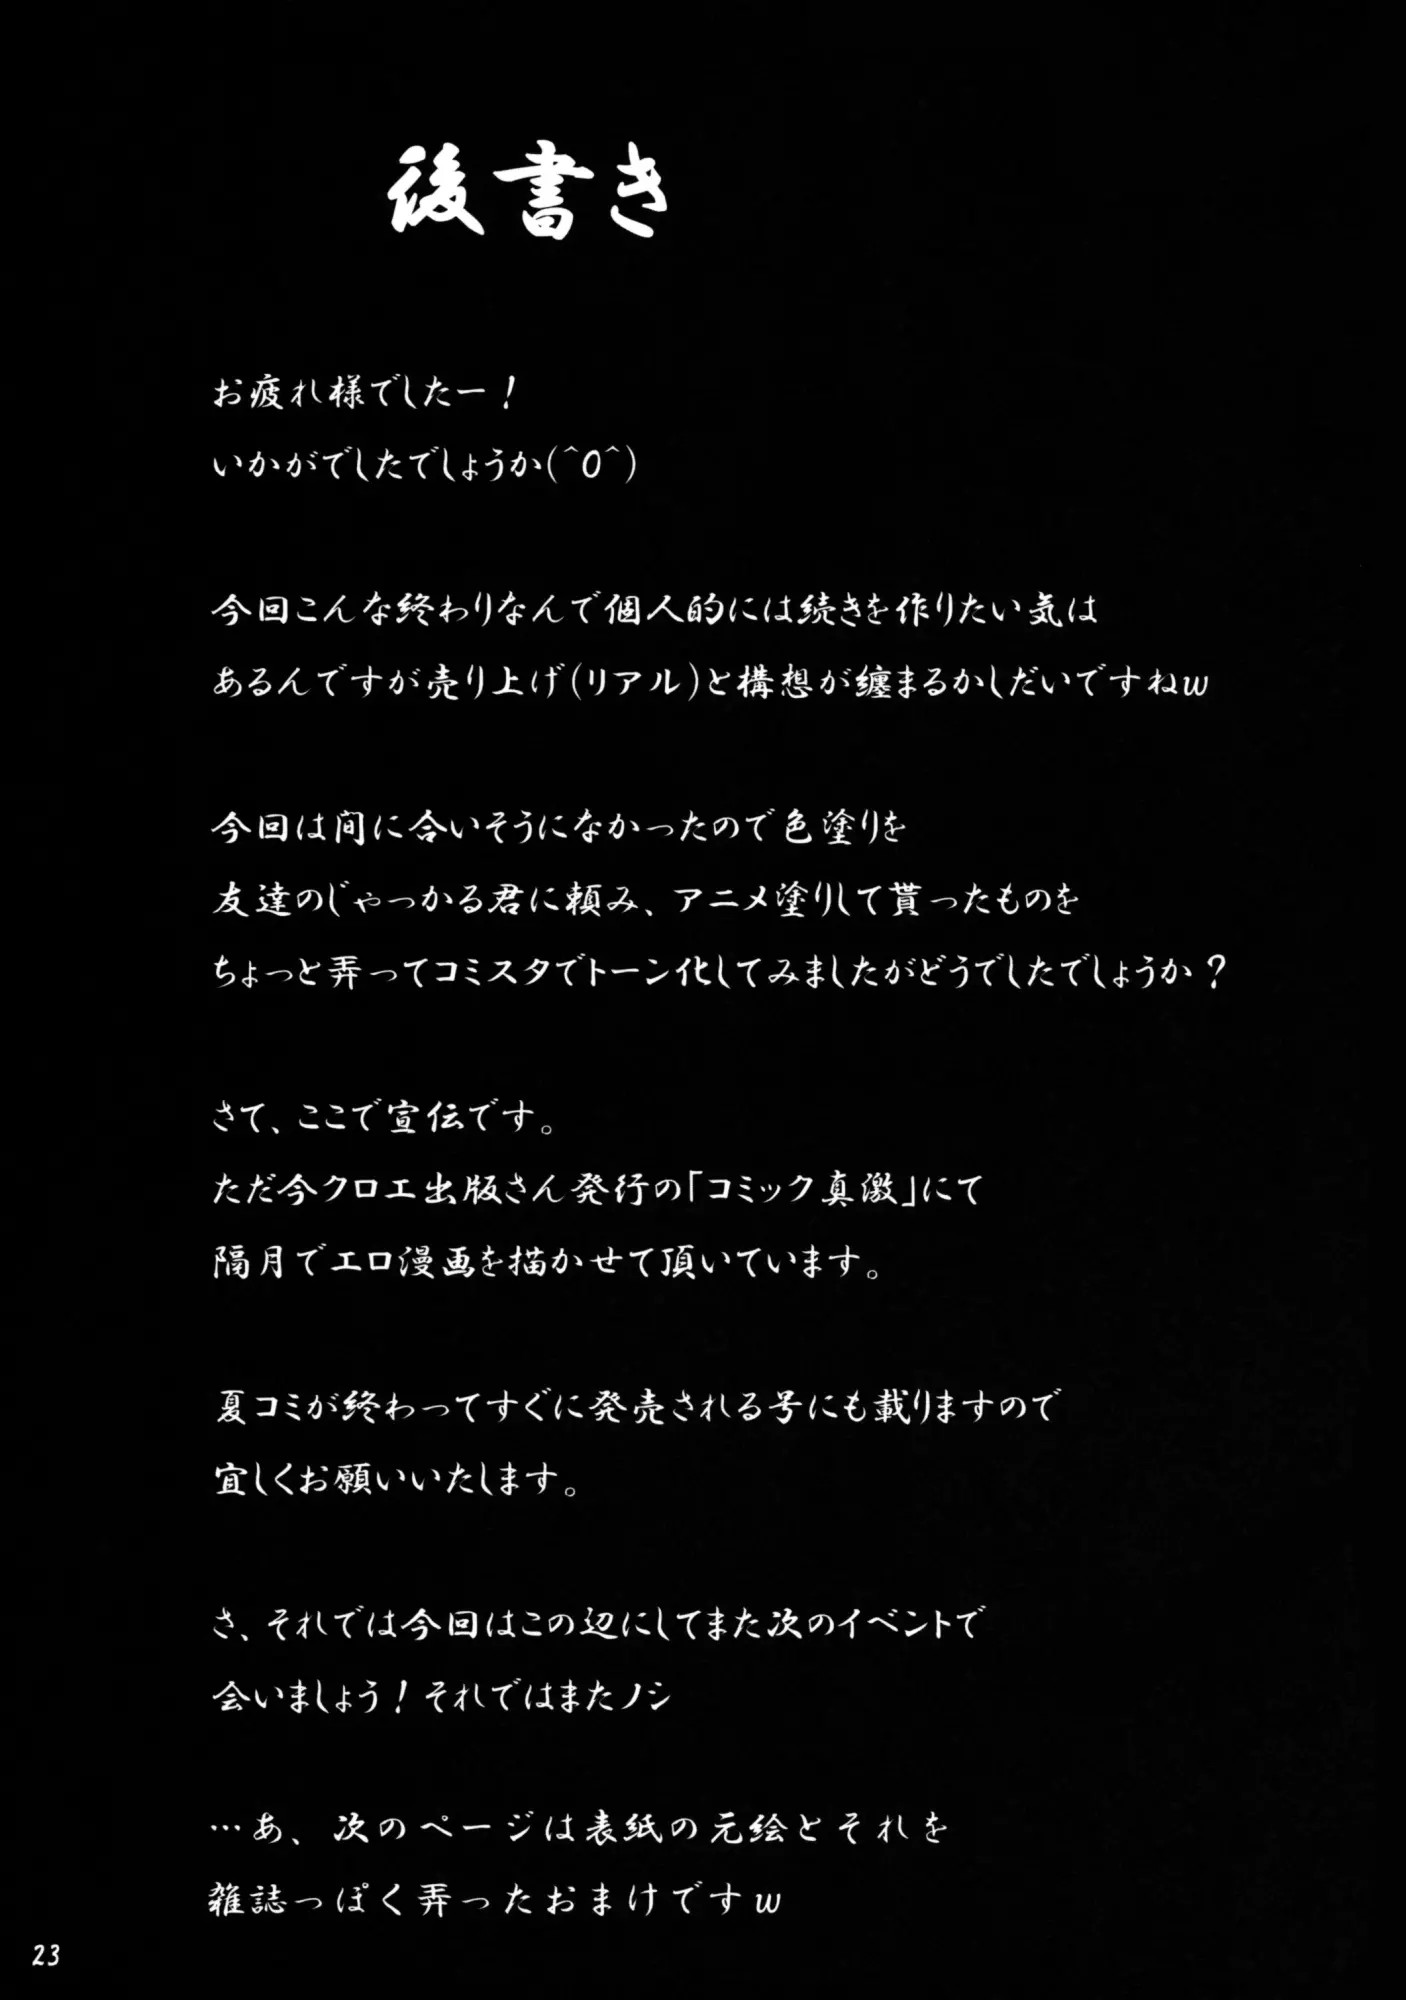 後書き
お疲れ様でしたー！
いかがでしたでしょうか(^O^)
今回こんな終わりなんで個人的には続きを作りたい気は
あるんですが売り上げ(リアル)と構想が纏まるかしだいですねw
今回は間に合いそうになかったので色塗りを
友達のじゃっかる君に頼み、アニメ塗りして貰ったものを
ちょっと弄ってコミスタでトーン化してみましたがどうでしたでしょうか？
さて、ここで宣伝です。
ただ今クロエ出版さん発行の「コミック真激」にて
隔月でエロ漫画を描かせて頂いています。
夏コミが終わってすぐに発売される号にも載りますので
宜しくお願いいたします。
さ、それでは今回はこの辺にしてまた次のイベントで
会いましょう！それではまたノシ
…あ、次のページは表紙の元絵とそれを
雑誌っぽく弄ったおまけですw
23